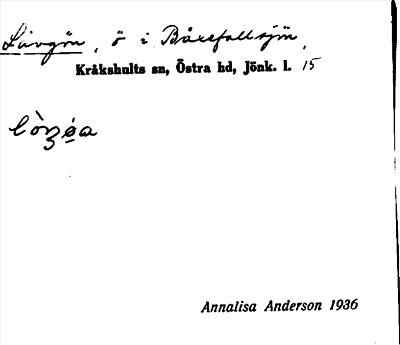 Lövgön, ö i Båxefallsjön,
Kråkshults sn, Östra hd, Jönk. l. 15
Annalisa Anderson 1936